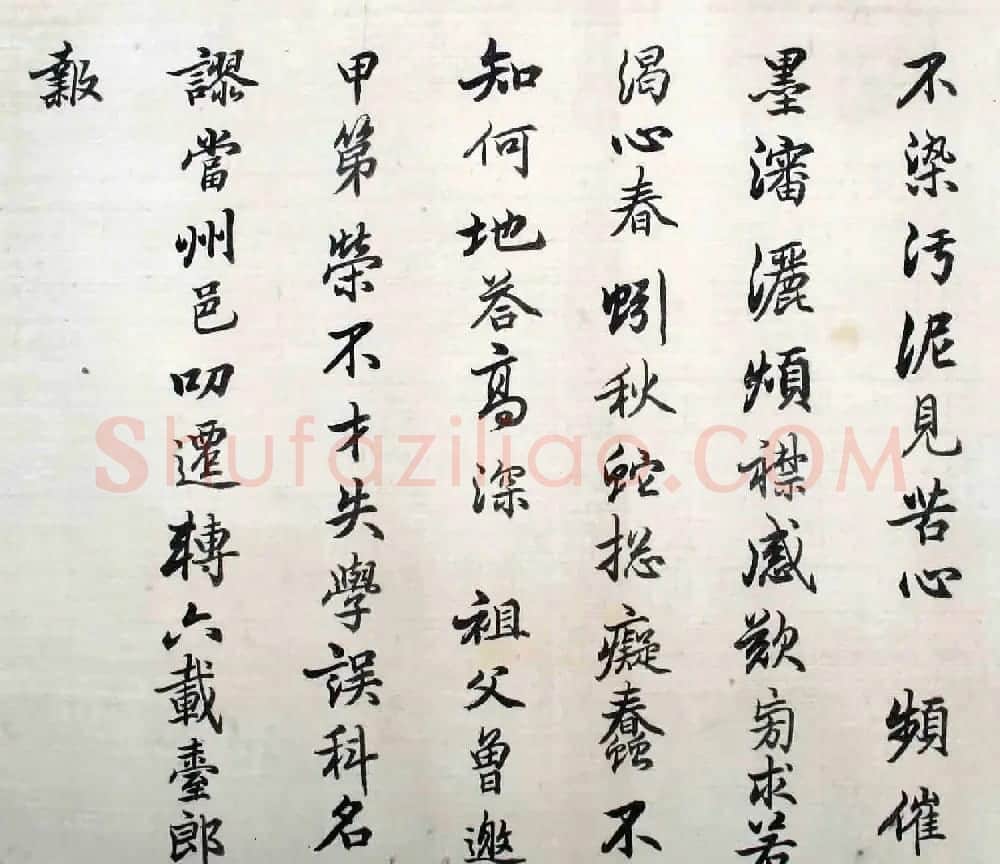 不染汚泥見苦心 頻催
墨瀋灑煩襟感歎旁求若
渴心春蚓秋蛇捴癡蠢不
知何地荅高深 祖父曾邀
甲第榮不才失學誤科名
謬當州邑叨遷轉六載臺郎
報
Shufaziliao.COM